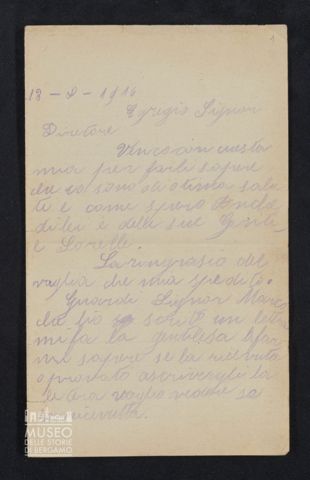 1
18 - 8 - 1916
Egregio Signor
Diretore
Vengo con cuesta
mia per farli sapere
che io sono di otima salu
te e come spero
di lei e delle sue
e Sorelle.
La ringrasio del
vaglia che mia spedito.
Guardi Signor Marco
che io scrito un letra
mi fa la gentilesa di far
mi sapere se la ricevuta
o provato a scrivergli la
letera voglio vedere se
ricevuta.
MUSEO
DELLE STORIE
DI BERGAMO